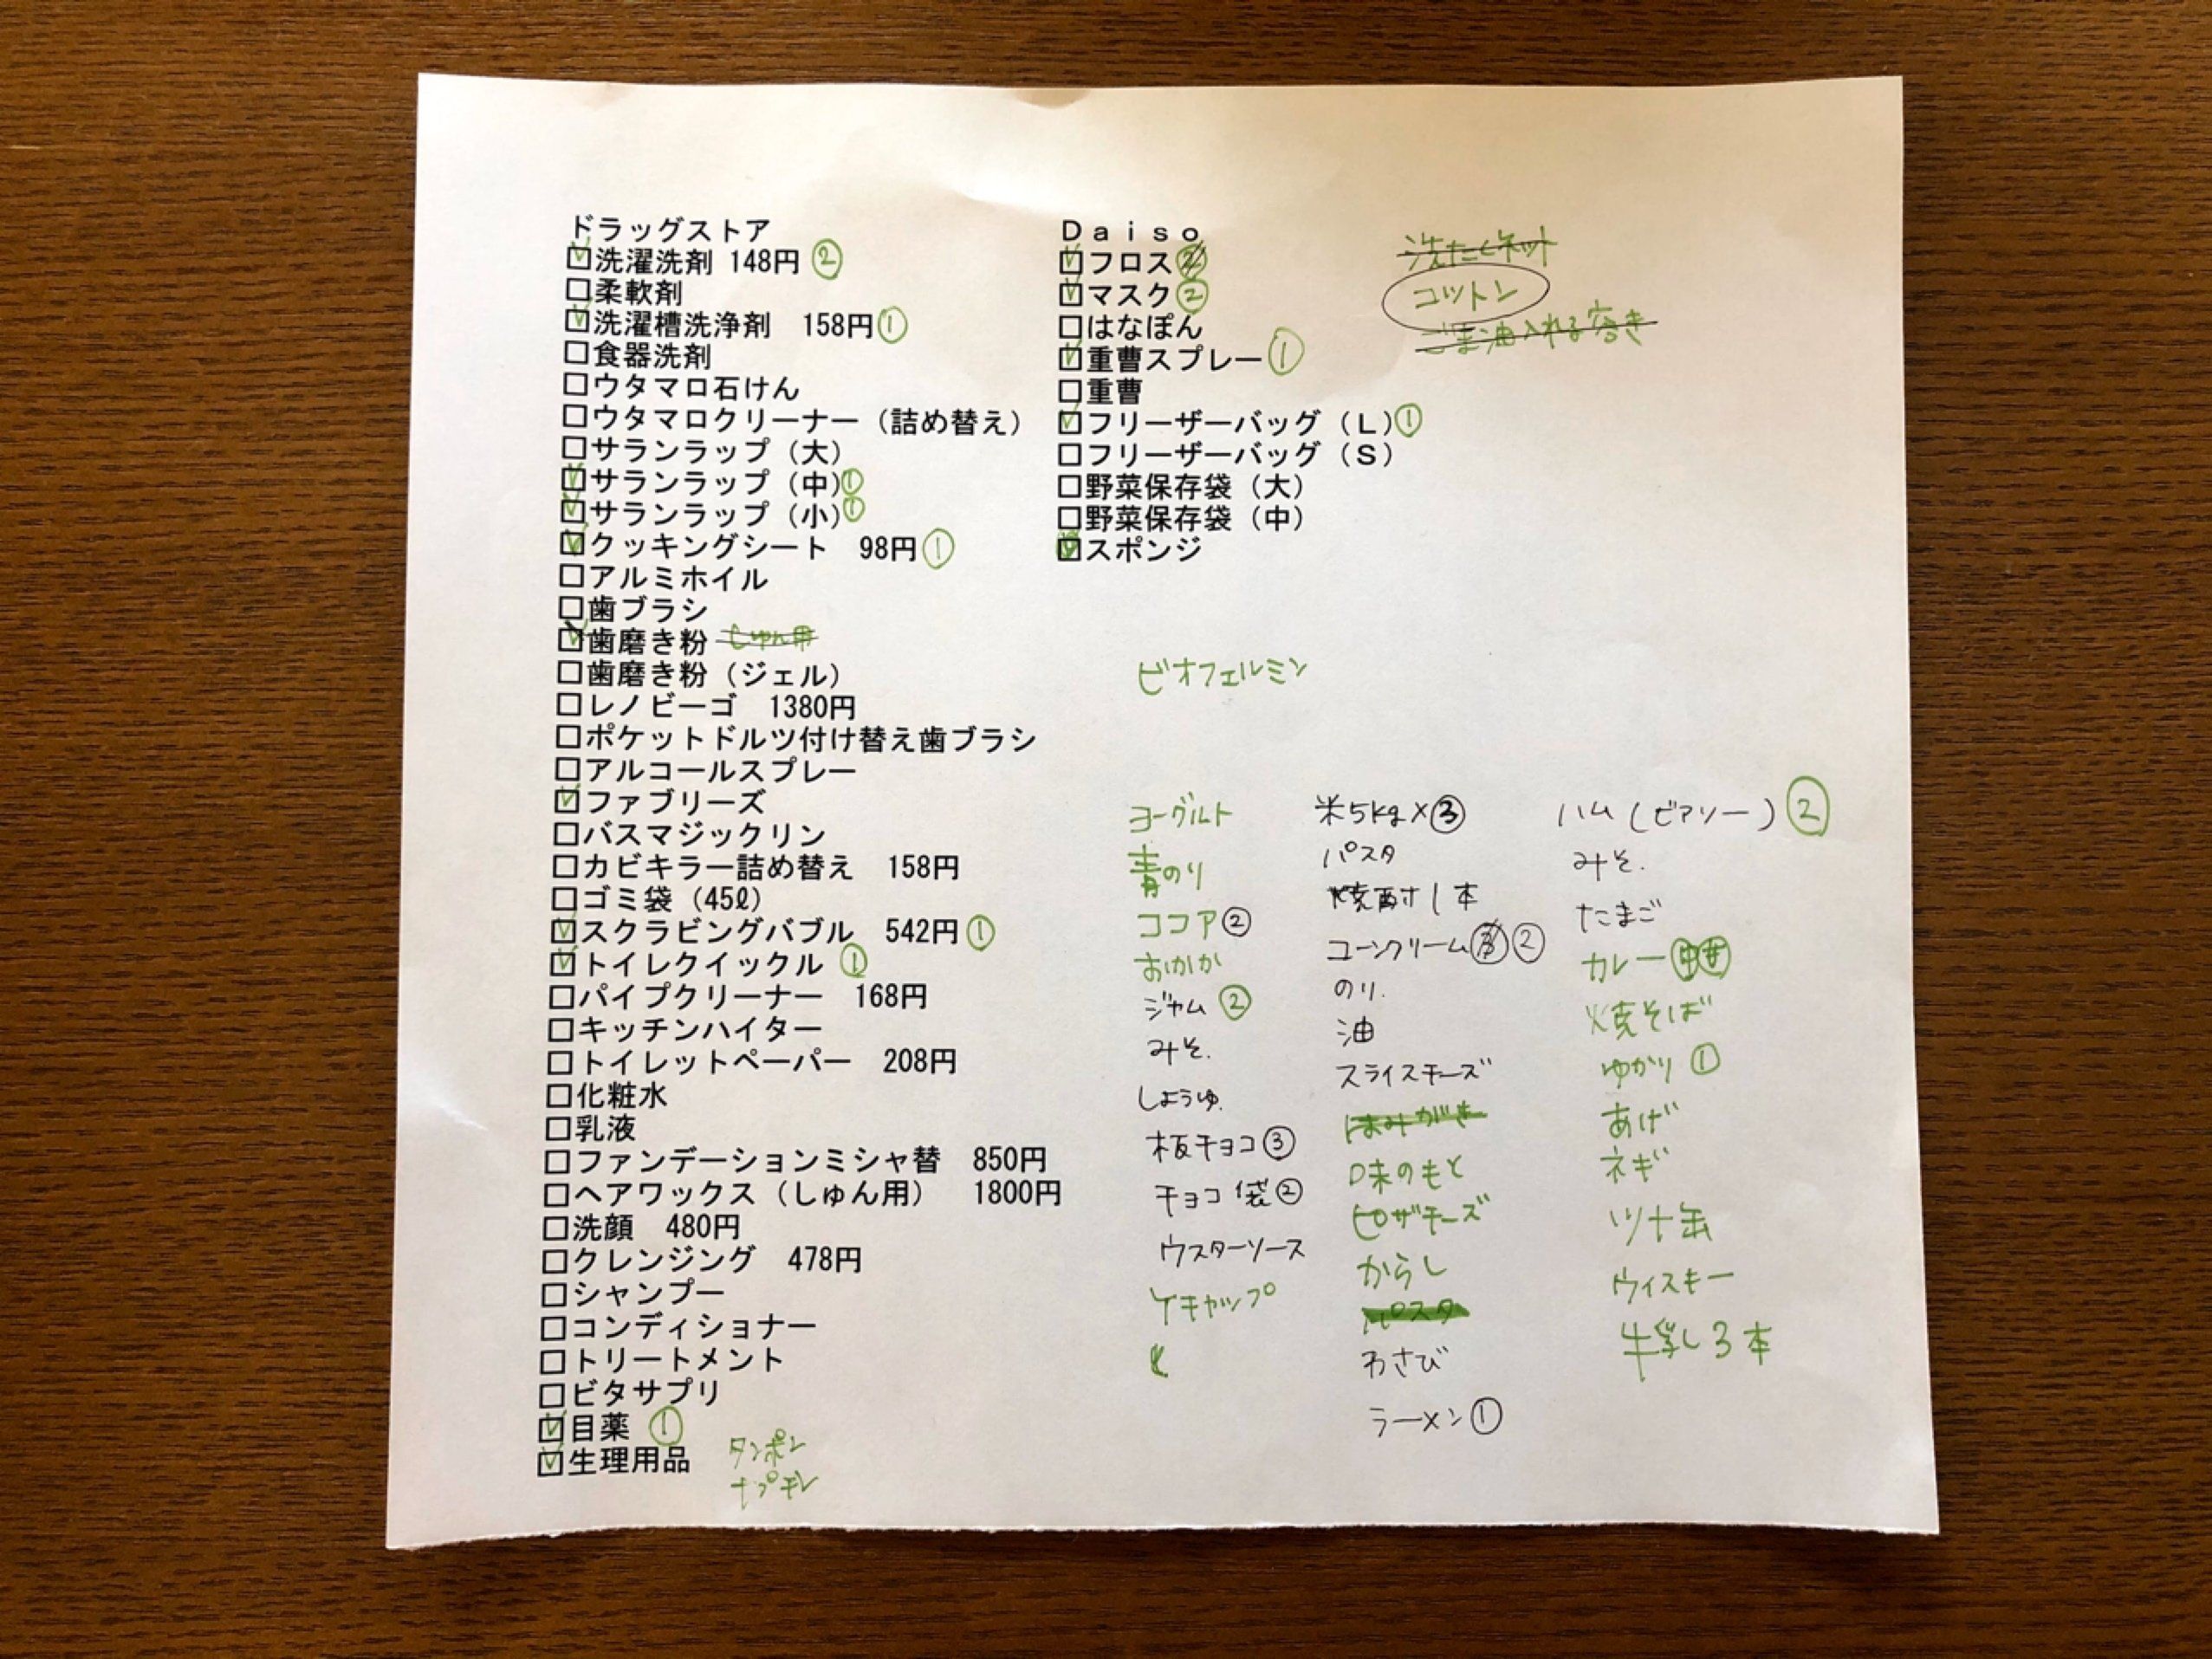 ドラッグストア
☑洗濯洗剤 148円 ②
□柔軟剤
☑洗濯槽洗浄剤　158円①
□食器洗剤
□ウタマロ石けん
□ウタマロクリーナー（詰め替え）
□サランラップ（大）
☑サランラップ（中）①
☑サランラップ（小）①
☑クッキングシート　98円①
□アルミホイル
□歯ブラシ
☑歯磨き粉 じゅん用
□歯磨き粉（ジェル）
□レノビーゴ　1380円
□ポケットドルツ付け替え歯ブラシ
□アルコールスプレー
☑ファブリーズ
□バスマジックリン
□カビキラー詰め替え　158円
□ゴミ袋（45ℓ）
☑スクラビングバブル　542円①
☑トイレクイックル ①
□パイプクリーナー　168円
□キッチンハイター
□トイレットペーパー　208円
□化粧水
□乳液
□ファンデーションミシャ替　850円
□ヘアワックス（しゅん用）　1800円
□洗顔　480円
□クレンジング　478円
□シャンプー
□コンディショナー
□トリートメント
□ビタサプリ
☑目薬 ①
☑生理用品
タンポン
ナプキン
Ｄａｉｓｏ
☑フロス②
☑マスク②
□はなぽん
☑重曹スプレー①
□重曹
☑フリーザーバッグ（Ｌ）①
□フリーザーバッグ（Ｓ）
□野菜保存袋（大）
□野菜保存袋（中）
☑スポンジ
洗たくネット
コットン
ごま油入れる容き
ビオフェルミン
ヨーグルト
青のり
ココア②
おかか
ジャム②
みそ.
しょうゆ.
板チョコ③
チョコ袋②
ウスターソース
ケチャップ
米5kg×③
パスタ
焼酎1本
コーンクリーム②
のり.
油
スライスチーズ
はみがき
味のもと
ピザチーズ
からし
パスタ
わさび
ラーメン①
ハム（ビアソー）②
みそ.
たまご
カレー中辛
焼そば
ゆかり①
あげ
ネギ
ツナ缶
ウィスキー
牛乳3本